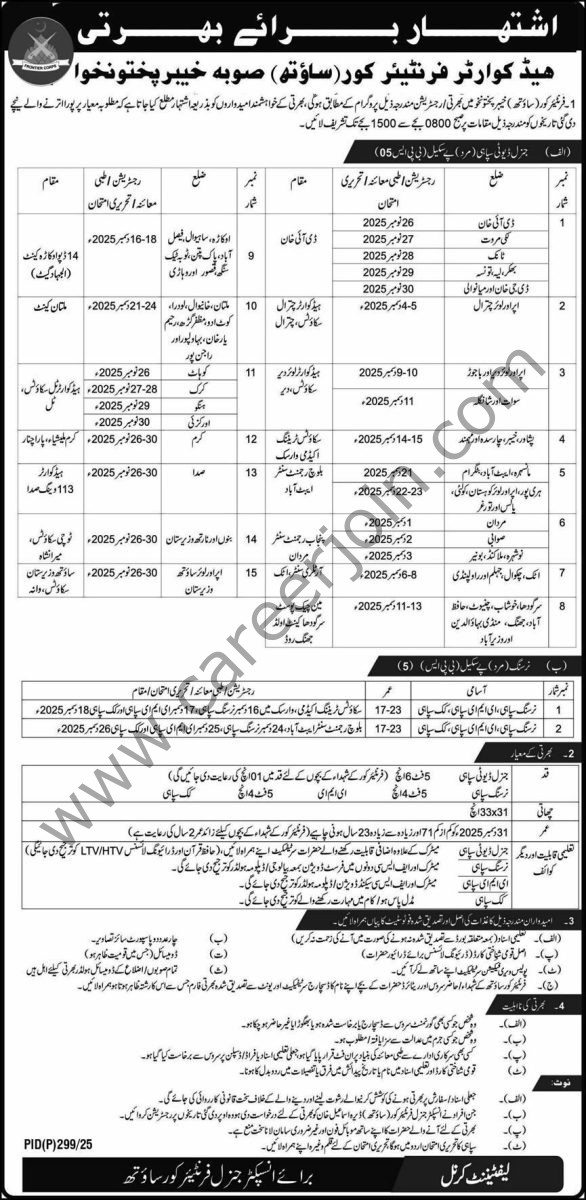 اشتہار برائے بھرتی
FRONTIER CORPS
ہیڈ کوارٹر فرنٹیئر کور (ساؤتھ) صوبہ خیبر پختونخواہ
1- فرنٹیئر کور (ساؤتھ) خیبر پختونخواہ میں بھرتی / رجسٹریشن مندرجہ ذیل پروگرام کے مطابق ہوگی، بھرتی کے خواہشمند امیدواروں کو بذریعہ اشتہار مطلع کیا جاتا ہے کہ مطلوبہ معیار پر پورا اترنے والے نیچے
دی گئی تاریخوں کو مندرجہ ذیل مقامات پر صبح 0800 بجے سے 1500 بجے تک تشریف لائیں۔
(الف) جنرل ڈیوٹی سپاہی (مرد) پے سکیل (بی پی ایس 05)
نمبر شمار ضلع رجسٹریشن / طبی معائنہ / تحریری امتحان مقام
1 ڈی آئی خان 26 نومبر 2025 ڈی آئی خان
لکی مروت 27 نومبر 2025
ٹانک 28 نومبر 2025
بھکر، لیہ، تونسہ 29 نومبر 2025
ڈی جی خان اور میانوالی 30 نومبر 2025
2 اپر اور لوئر چترال 4-5 دسمبر 2025ء ہیڈ کوارٹر چترال سکاؤٹس، چترال
3 اپر اور لوئر دیر اور باجوڑ 9-10 دسمبر 2025ء ہیڈ کوارٹر لوئر دیر سکاؤٹس، دیر
سوات اور شانگلہ 11 دسمبر 2025ء
4 پشاور، خیبر، چارسدہ اور مہمند 14-15 دسمبر 2025ء سکاؤٹس ٹریننگ اکیڈمی وارسک
5 مانسہرہ، ایبٹ آباد، بٹگرام 21 دسمبر 2025ء بلوچ رجمنٹ سنٹر ایبٹ آباد
ہری پور، اپر اور لوئر کوہستان، کولئی، پالس اور تورغر 22-23 دسمبر 2025ء
6 مردان 1 دسمبر 2025ء پنجاب رجمنٹ سنٹر مردان
صوابی 2 دسمبر 2025ء
نوشہرہ، ملاکنڈ، بونیر 3 دسمبر 2025ء
7 اٹک، چکوال، جہلم اور راولپنڈی 6-8 دسمبر 2025ء آرٹلری سنٹر، اٹک
8 سرگودھا، خوشاب، چنیوٹ، حافظ آباد، جھنگ، منڈی بہاؤالدین اور وزیر آباد 11-13 دسمبر 2025ء مین چیک پوسٹ سرگودھا کینٹ اولڈ جھنگ روڈ
نمبر شمار ضلع رجسٹریشن / طبی معائنہ / تحریری امتحان مقام
9 اوکاڑہ، ساہیوال، فیصل آباد، پاک پتن، ٹوبہ ٹیک سنگھ، قصور اور وہاڑی 16-18 دسمبر 2025ء 14 ڈیو اوکاڑہ کینٹ (الجہاد گیٹ)
10 ملتان، خانیوال، لودراں، کوٹ ادو، مظفر گڑھ، رحیم یار خان، بہاولپور اور راجن پور 21-24 دسمبر 2025ء ملتان کینٹ
11 کوہاٹ 26 نومبر 2025ء ہیڈ کوارٹر ٹل سکاؤٹس، ٹل
کرک 27-28 نومبر 2025ء
ہنگو 29 نومبر 2025ء
اورکزئی 30 نومبر 2025ء
12 کرم 26-30 نومبر 2025ء کرم ملیشیاء، پاراچنار
13 صدا 26-30 نومبر 2025ء ہیڈ کوارٹر 113 ونگ صدا
14 بنوں اور نارتھ وزیرستان 26-30 نومبر 2025ء ٹوچی سکاؤٹس، میرانشاہ
15 اپر اور لوئر ساؤتھ وزیرستان 26-30 نومبر 2025ء ساؤتھ وزیرستان سکاؤٹس، وانہ
(ب) نرسنگ (مرد) پے سکیل (بی پی ایس) (5)
نمبر شمار آسامی عمر رجسٹریشن / طبی معائنہ / تحریری امتحان / مقام
1 نرسنگ سپاہی، ای ایم ای سپاہی، کک سپاہی 17-23 سکاؤٹس ٹریننگ اکیڈمی، وارسک میں 16 دسمبر نرسنگ سپاہی، 17 دسمبر ای ایم ای سپاہی اور کک سپاہی 18 دسمبر 2025ء
2 نرسنگ سپاہی، ای ایم ای سپاہی، کک سپاہی 17-23 بلوچ رجمنٹ سنٹر ایبٹ آباد، 24 دسمبر نرسنگ سپاہی، 25 دسمبر ای ایم ای سپاہی اور کک سپاہی 26 دسمبر 2025ء
2- بھرتی کے معیار
قد جنرل ڈیوٹی سپاہی 5 فٹ 6 انچ (فرنٹیئر کور کے شہداء کے بچوں کے لئے قد میں 01 انچ کی رعایت دی جائیں گی)
نرسنگ سپاہی 5 فٹ 4 انچ ای ایم ای 5 فٹ 4 انچ کک سپاہی
چھاتی 33x31 انچ
عمر 31 دسمبر 2025 کو کم از کم 17 اور زیادہ سے زیادہ 23 سال ہونی چاہیے (فرنٹیئر کور کے شہداء کے بچوں کیلئے زائد عمر 2 سال کی رعایت ہے)
تعلیمی قابلیت اور دیگر کوائف جنرل ڈیوٹی سپاہی میٹرک کے علاوہ اضافی قابلیت رکھنے والے حضرات سرٹیفکیٹ اپنے ہمراہ لائیں، (حافظ قرآن اور ڈرائیونگ لائسنس LTV/HTV کو ترجیح دی جائیگی)
نرسنگ سپاہی میٹرک اور ایف ایس سی دونوں میں فرسٹ ڈویژن بمعہ بیالوجی / ڈپلومہ ہولڈر کو ترجیح دی جائے گی۔
ای ایم ای سپاہی میٹرک اور ایف ایس سی سیکنڈ ڈویژن / ڈپلومہ ہولڈر کو ترجیح دی جائے گی۔
کک سپاہی مڈل پاس / کام میں مہارت رکھنے والے کو ترجیح دی جائے گی۔
3- امیدواران مندرجہ ذیل کاغذات کی اصل اور تصدیق شدہ فوٹوسٹیٹ کاپیاں ہمراہ لائیں۔
(الف)۔ تعلیمی اسناد (بمعہ متعلقہ بورڈ سے تصدیق شدہ نہ ہونے کی صورت میں آنے کی زحمت نہ کریں)
(ب) چار عدد و پاسپورٹ سائز تصاویر۔
(پ)۔ اصل قومی شناختی کارڈ (ڈرائیونگ لائسنس برائے ڈرائیور حضرات)
(ت) ڈومیسائل (جس میں قومیت ظاہر ہو)
(ٹ)۔ پولیس ویریفکیشن سرٹیفکیٹ اپنے ساتھ لے کر آئیں۔
(ث) تمام صوبوں / اضلاع کے ڈومیسائل ہولڈر بھرتی کیلئے اہل ہیں
(ج) فرنٹیئر کور ساؤتھ کے شہداء / حاضر سروس اور ریٹائرڈ حضرات کے بچے اپنے نام کا ڈسچارج سرٹیفکیٹ اور یونٹ سے تصدیق شدہ بھرتی فارم جس سے اس کا رشتہ ظاہر ہوتا ہو ہمراہ لائیں۔
4- بھرتی کی نااہلیت
(الف)۔ وہ شخص جو کسی بھی گورنمنٹ سروس سے ڈسچارج یا برخاست شدہ ہو یا بھگوڑا یا غیر حاضر ہو چکا ہو۔
(ب)۔ وہ شخص جو کسی جرم میں عدالت سے سزا یافتہ / مطلوب ہو۔
(پ)۔ کسی بھی سرکاری ادارے سے طبی معائنہ کی بنیاد پر ان فٹ قرار پایا گیا ہو، جعلی تعلیمی اسناد یا فراڈ / ڈسپلن پر سروس سے برخاست کیا گیا ہو۔
(ت)۔ قومی شناختی کارڈ اور تعلیمی اسناد میں نام یا تاریخ پیدائش میں فرق یا تفصیلات میں رد و بدل کا ہونا۔
نوٹ:
(الف)۔ جعلی اسناد / سفارش پر بھرتی ہونے کی کوشش کرنے والے اور رشوت لینے اور دینے والے کے خلاف سخت قانونی کارروائی کی جائے گی۔
(ب)۔ جن افراد نے انسپکٹر جنرل فرنٹیئر کور (ساؤتھ) ڈیرہ اسماعیل خان کو بھرتی کے لئے درخواست دی ہو وہ اوپر دی گئی تاریخوں پر رجسٹریشن کروائیں۔
(پ)۔ بھرتی کے لئے آنے والے حضرات کا اپنے ساتھ موبائل فون اور غیر ضروری سامان لانا سخت منع ہے۔
(ت)۔ سپاہی کا تحریری امتحان اردو میں ہوگا، تحریری امتحان کے لئے قلم وغیرہ اپنے ہمراہ لائیں۔
PID(P)299/25
لیفٹیننٹ کرنل
برائے انسپکٹر جنرل فرنٹیئر کور ساؤتھ
www.careerjoin.com